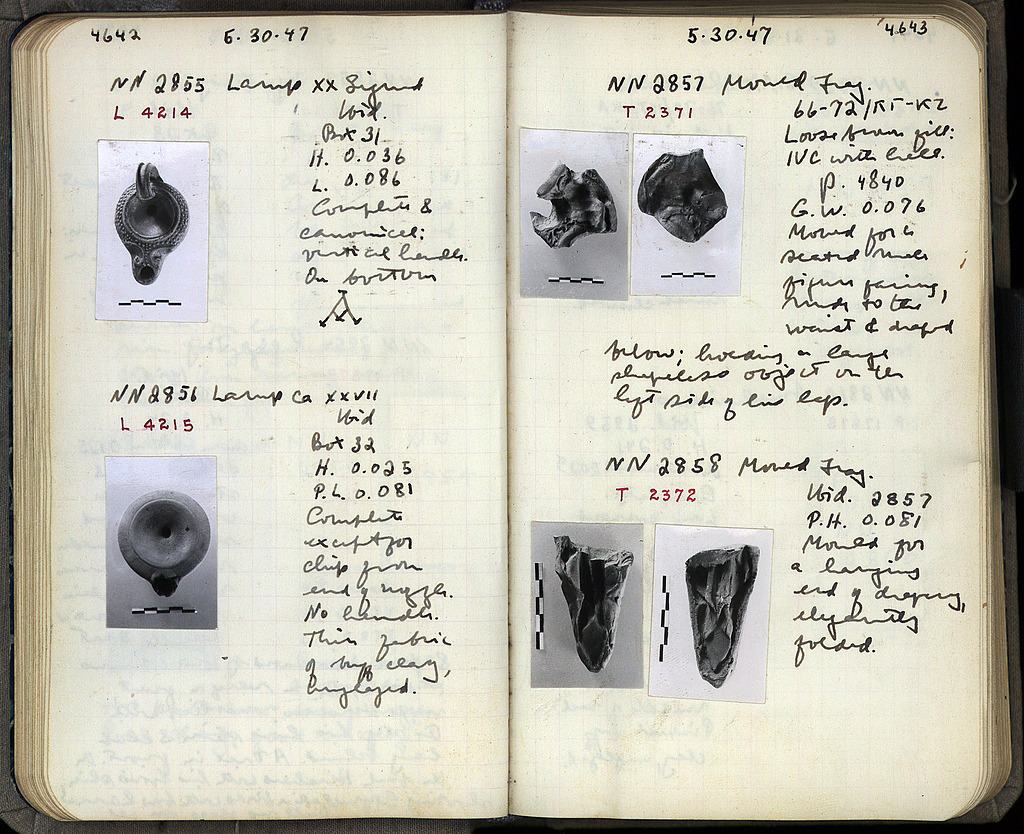 4642
5.30.47
NN 2855 Lamp XX Signed
L 4214
Ibid.
Box 31
H. 0.036
L. 0.086
Complete &
canonical;
vertical handle.
On bottom
NN 2856 Lamp ca XXVII
L 4215
Ibid
Box 32
H. 0.025
P.L. 0.081
Complete
except for
chip from
end of nozzle.
No handle.
Thin fabric
of buff clay,
unglazed.
5.30.47
4643
NN 2857 Mould Frag.
T 2371
66-72/ΚΓ-ΚΖ
Loose brown fill:
IVC with Hell.
p. 4840
G.W. 0.076
Mould for a
seated male
figure facing,
nude to the
waist & draped
below; holding a large
shapeless object on the
left side of his lap.
NN 2858 Mould Frag.
T 2372
Ibid. 2857
P.H. 0.081
Mould for
a hanging
end of drapery,
elegantly
folded.